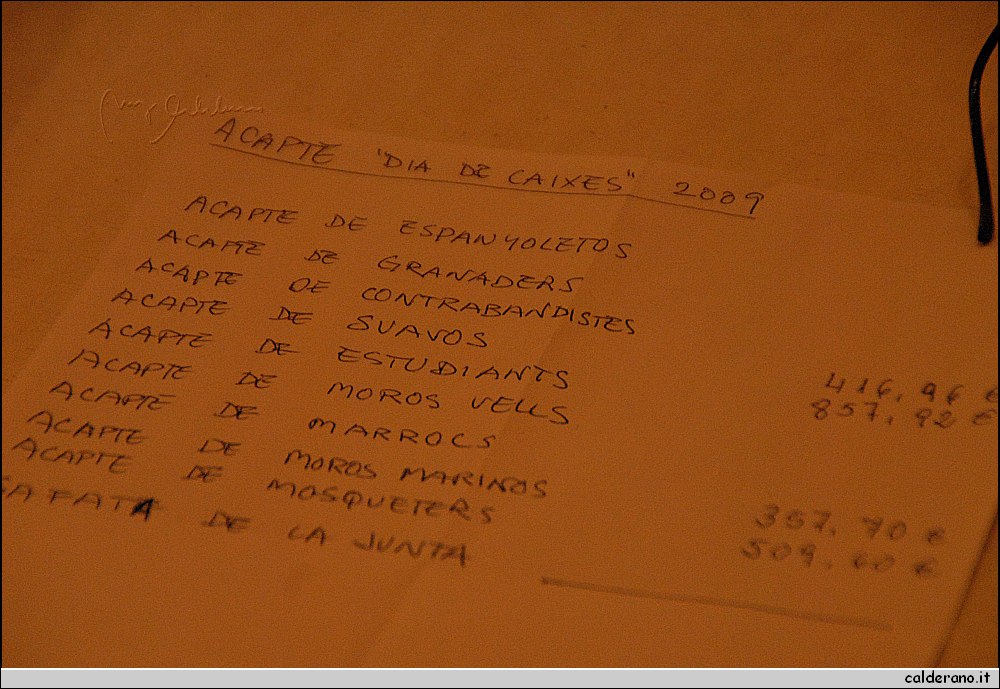 ACAPTE "DIA DE CAIXES" 2009
ACAPTE DE ESPANYOLETOS
ACAPTE DE GRANADERS
ACAPTE DE CONTRABANDISTES
ACAPTE DE SUAVOS 416,96 €
ACAPTE DE ESTUDIANTS 857,92 €
ACAPTE DE MOROS VELLS
ACAPTE DE MARROCS
ACAPTE DE MOROS MARINOS 367,70 €
ACAPTE DE MOSQUETERS 509,60 €
SAFATA DE LA JUNTA
calderano.it